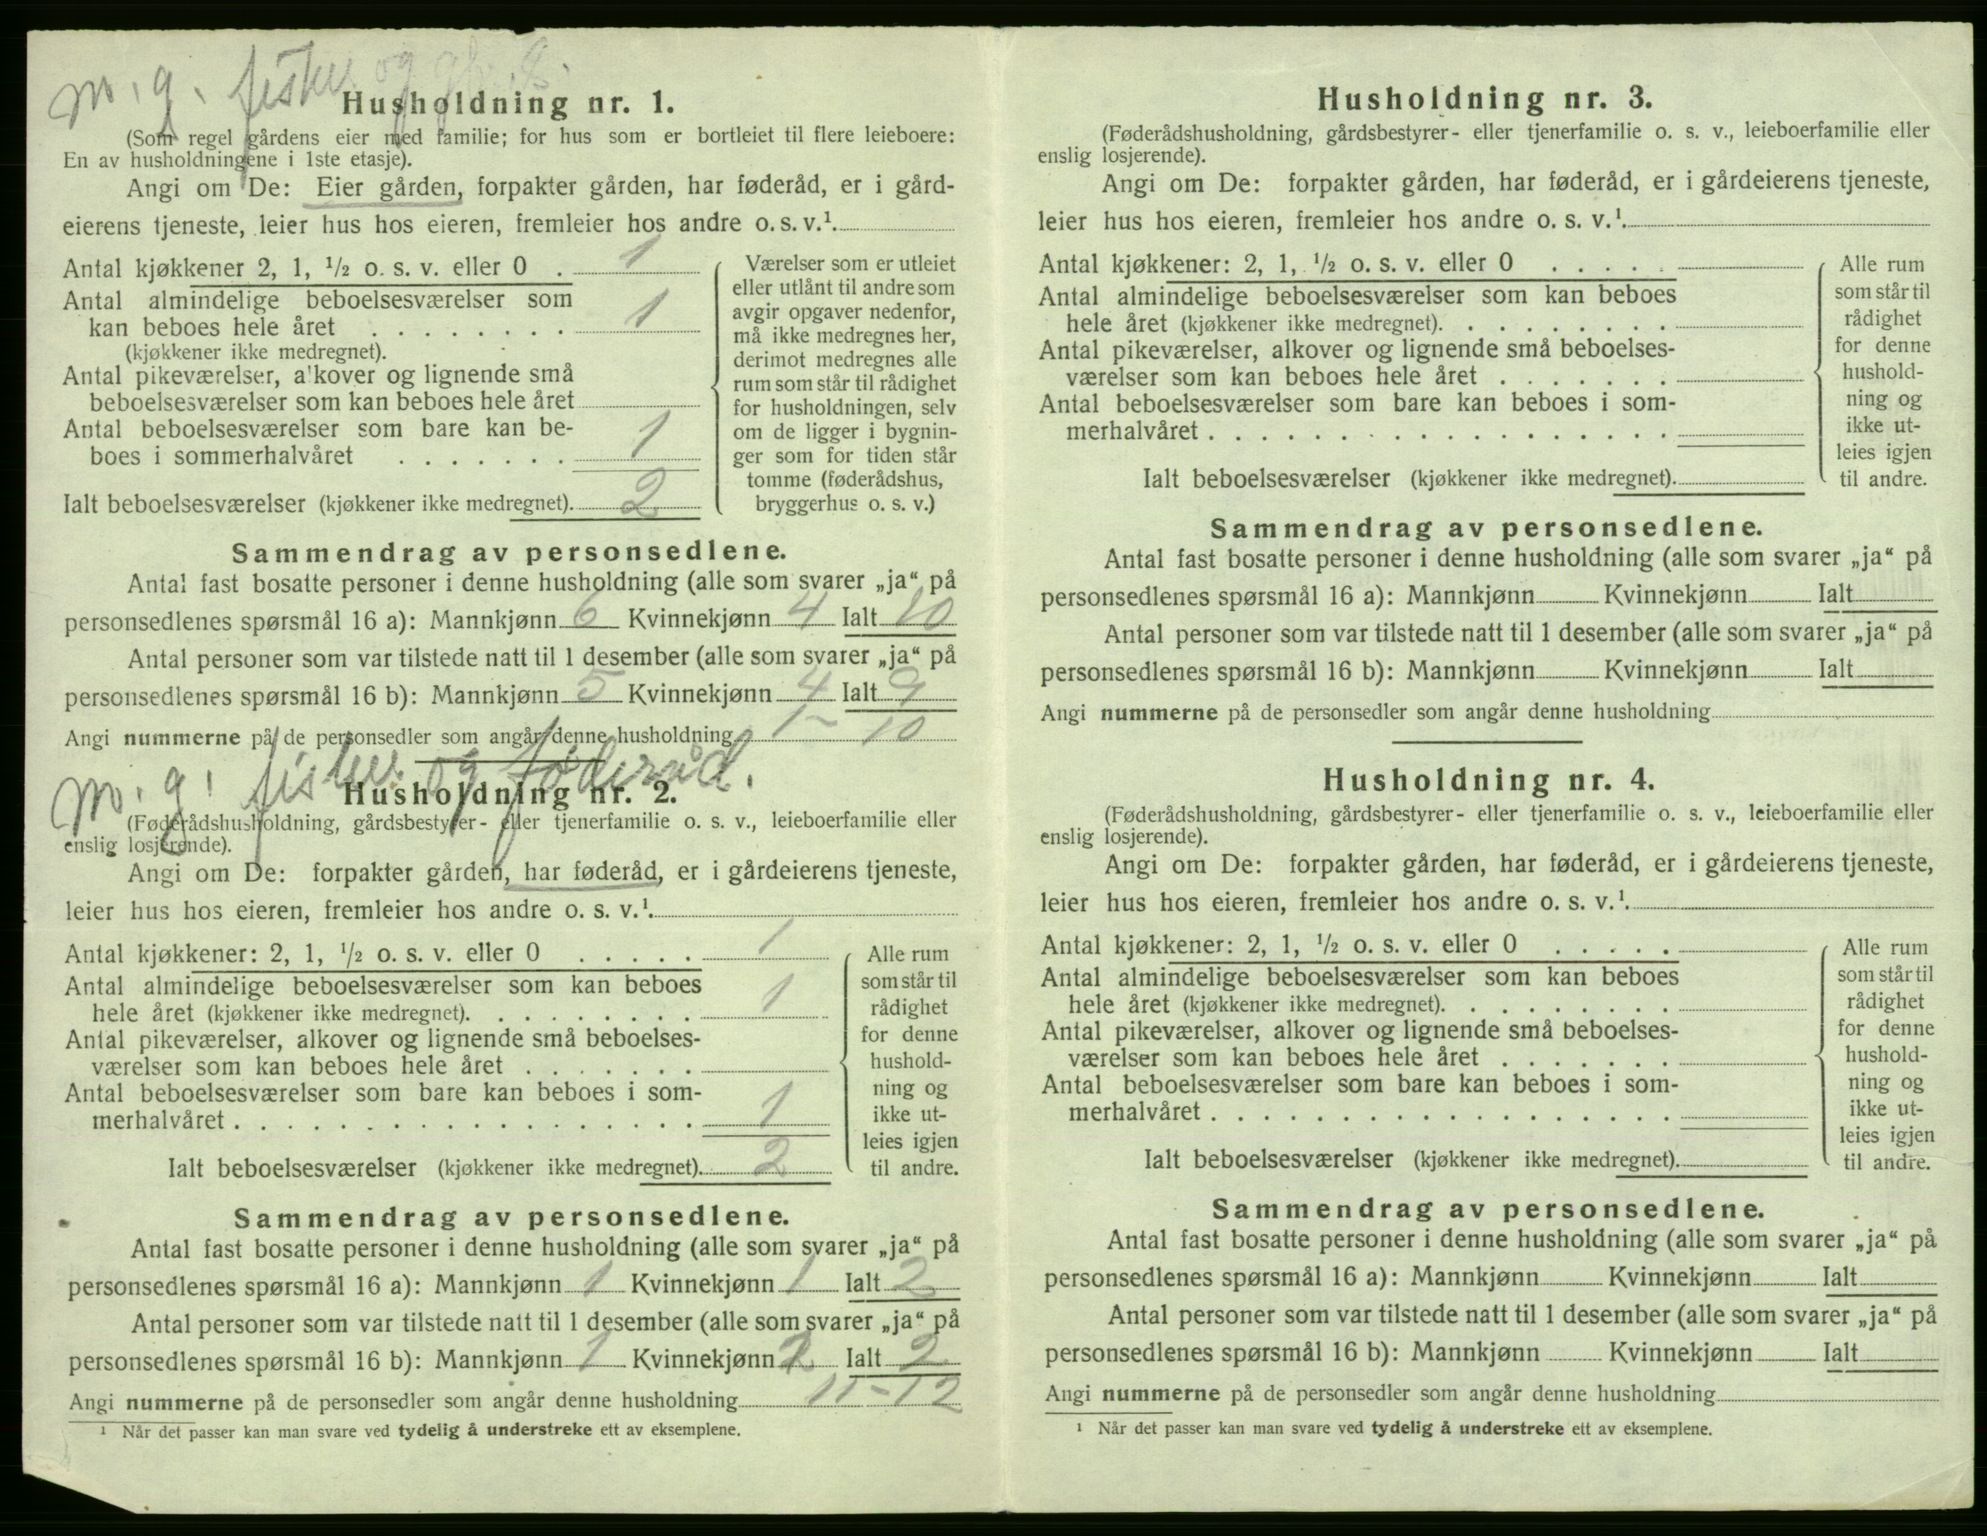 m. g. fisker og gbr.
Husholdning nr. 1.
(Som regel gårdens eier med familie; for hus som er bortleiet til flere leieboere:
En av husholdningene i 1ste etasje).
Angi om De: Eier gården, forpakter gården, har føderåd, er i gård-
eierens tjeneste, leier hus hos eieren, fremleier hos andre o. s. v.¹.
Antal kjøkkener 2, 1, ½ o. s. v. eller 0 . 1
Antal almindelige beboelsesværelser som
kan beboes hele året . . . . . . . . 1
(kjøkkener ikke medregnet).
Antal pikeværelser, alkover og lignende små
beboelsesværelser som kan beboes hele året
Antal beboelsesværelser som bare kan be-
boes i sommerhalvåret . . . . . . . 1
Ialt beboelsesværelser (kjøkkener ikke medregnet). 2
Værelser som er utleiet
eller utlånt til andre som
avgir opgaver nedenfor,
må ikke medregnes her,
derimot medregnes alle
rum som står til rådighet
for husholdningen, selv
om de ligger i bygnin-
ger som for tiden står
tomme (føderådshus,
bryggerhus o. s. v.)
Sammendrag av personsedlene.
Antal fast bosatte personer i denne husholdning (alle som svarer „ja“ på
personsedlenes spørsmål 16 a): Mannkjønn 6 Kvinnekjønn 4 Ialt 10
Antal personer som var tilstede natt til 1 desember (alle som svarer „ja“ på
personsedlenes spørsmål 16 b): Mannkjønn 5 Kvinnekjønn 4 Ialt 9
Angi nummerne på de personsedler som angår denne husholdning 1 – 10
m. g. fisker og føderåd.
Husholdning nr. 2.
(Føderådshusholdning, gårdsbestyrer- eller tjenerfamilie o. s. v., leieboerfamilie eller
enslig losjerende).
Angi om De: forpakter gården, har føderåd, er i gårdeierens tjeneste,
leier hus hos eieren, fremleier hos andre o. s. v.¹.
Antal kjøkkener: 2, 1, ½ o. s. v. eller 0 . . . . . 1
Antal almindelige beboelsesværelser som kan beboes
hele året (kjøkkener ikke medregnet). . . . . . . . . 1
Antal pikeværelser, alkover og lignende små beboelses-
værelser som kan beboes hele året . . . . . . .
Antal beboelsesværelser som bare kan beboes i som-
merhalvåret . . . . . . . . . . . . . . . . . . 1
Ialt beboelsesværelser (kjøkkener ikke medregnet). 2
Alle rum
som står til
rådighet
for denne
hushold-
ning og
ikke ut-
leies igjen
til andre.
Sammendrag av personsedlene.
Antal fast bosatte personer i denne husholdning (alle som svarer „ja“ på
personsedlenes spørsmål 16 a): Mannkjønn 1 Kvinnekjønn 1 Ialt 2
Antal personer som var tilstede natt til 1 desember (alle som svarer „ja“ på
personsedlenes spørsmål 16 b): Mannkjønn 1 Kvinnekjønn Ialt 2
Angi nummerne på de personsedler som angår denne husholdning 11 – 12
¹ Når det passer kan man svare ved tydelig å understreke ett av eksemplene.
Husholdning nr. 3.
(Føderådshusholdning, gårdsbestyrer- eller tjenerfamilie o. s. v., leieboerfamilie eller
enslig losjerende).
Angi om De: forpakter gården, har føderåd, er i gårdeierens tjeneste,
leier hus hos eieren, fremleier hos andre o. s. v.¹.
Antal kjøkkener: 2, 1, ½ o. s. v. eller 0 . . . . .
Antal almindelige beboelsesværelser som kan beboes
hele året (kjøkkener ikke medregnet). . . . . . . . .
Antal pikeværelser, alkover og lignende små beboelses-
værelser som kan beboes hele året . . . . . . .
Antal beboelsesværelser som bare kan beboes i som-
merhalvåret . . . . . . . . . . . . . . . . . .
Ialt beboelsesværelser (kjøkkener ikke medregnet).
Alle rum
som står til
rådighet
for denne
hushold-
ning og
ikke ut-
leies igjen
til andre.
Sammendrag av personsedlene.
Antal fast bosatte personer i denne husholdning (alle som svarer „ja“ på
personsedlenes spørsmål 16 a): Mannkjønn Kvinnekjønn Ialt
Antal personer som var tilstede natt til 1 desember (alle som svarer „ja“ på
personsedlenes spørsmål 16 b): Mannkjønn Kvinnekjønn Ialt
Angi nummerne på de personsedler som angår denne husholdning
Husholdning nr. 4.
(Føderådshusholdning, gårdsbestyrer- eller tjenerfamilie o. s. v., leieboerfamilie eller
enslig losjerende).
Angi om De: forpakter gården, har føderåd, er i gårdeierens tjeneste,
leier hus hos eieren, fremleier hos andre o. s. v.¹.
Antal kjøkkener: 2, 1, ½ o. s. v. eller 0 . . . . .
Antal almindelige beboelsesværelser som kan beboes
hele året (kjøkkener ikke medregnet). . . . . . . . .
Antal pikeværelser, alkover og lignende små beboelses-
værelser som kan beboes hele året . . . . . . .
Antal beboelsesværelser som bare kan beboes i som-
merhalvåret . . . . . . . . . . . . . . . . . .
Ialt beboelsesværelser (kjøkkener ikke medregnet).
Alle rum
som står til
rådighet
for denne
hushold-
ning og
ikke ut-
leies igjen
til andre.
Sammendrag av personsedlene.
Antal fast bosatte personer i denne husholdning (alle som svarer „ja“ på
personsedlenes spørsmål 16 a): Mannkjønn Kvinnekjønn Ialt
Antal personer som var tilstede natt til 1 desember (alle som svarer „ja“ på
personsedlenes spørsmål 16 b): Mannkjønn Kvinnekjønn Ialt
Angi nummerne på de personsedler som angår denne husholdning
¹ Når det passer kan man svare ved tydelig å understreke ett av eksemplene.